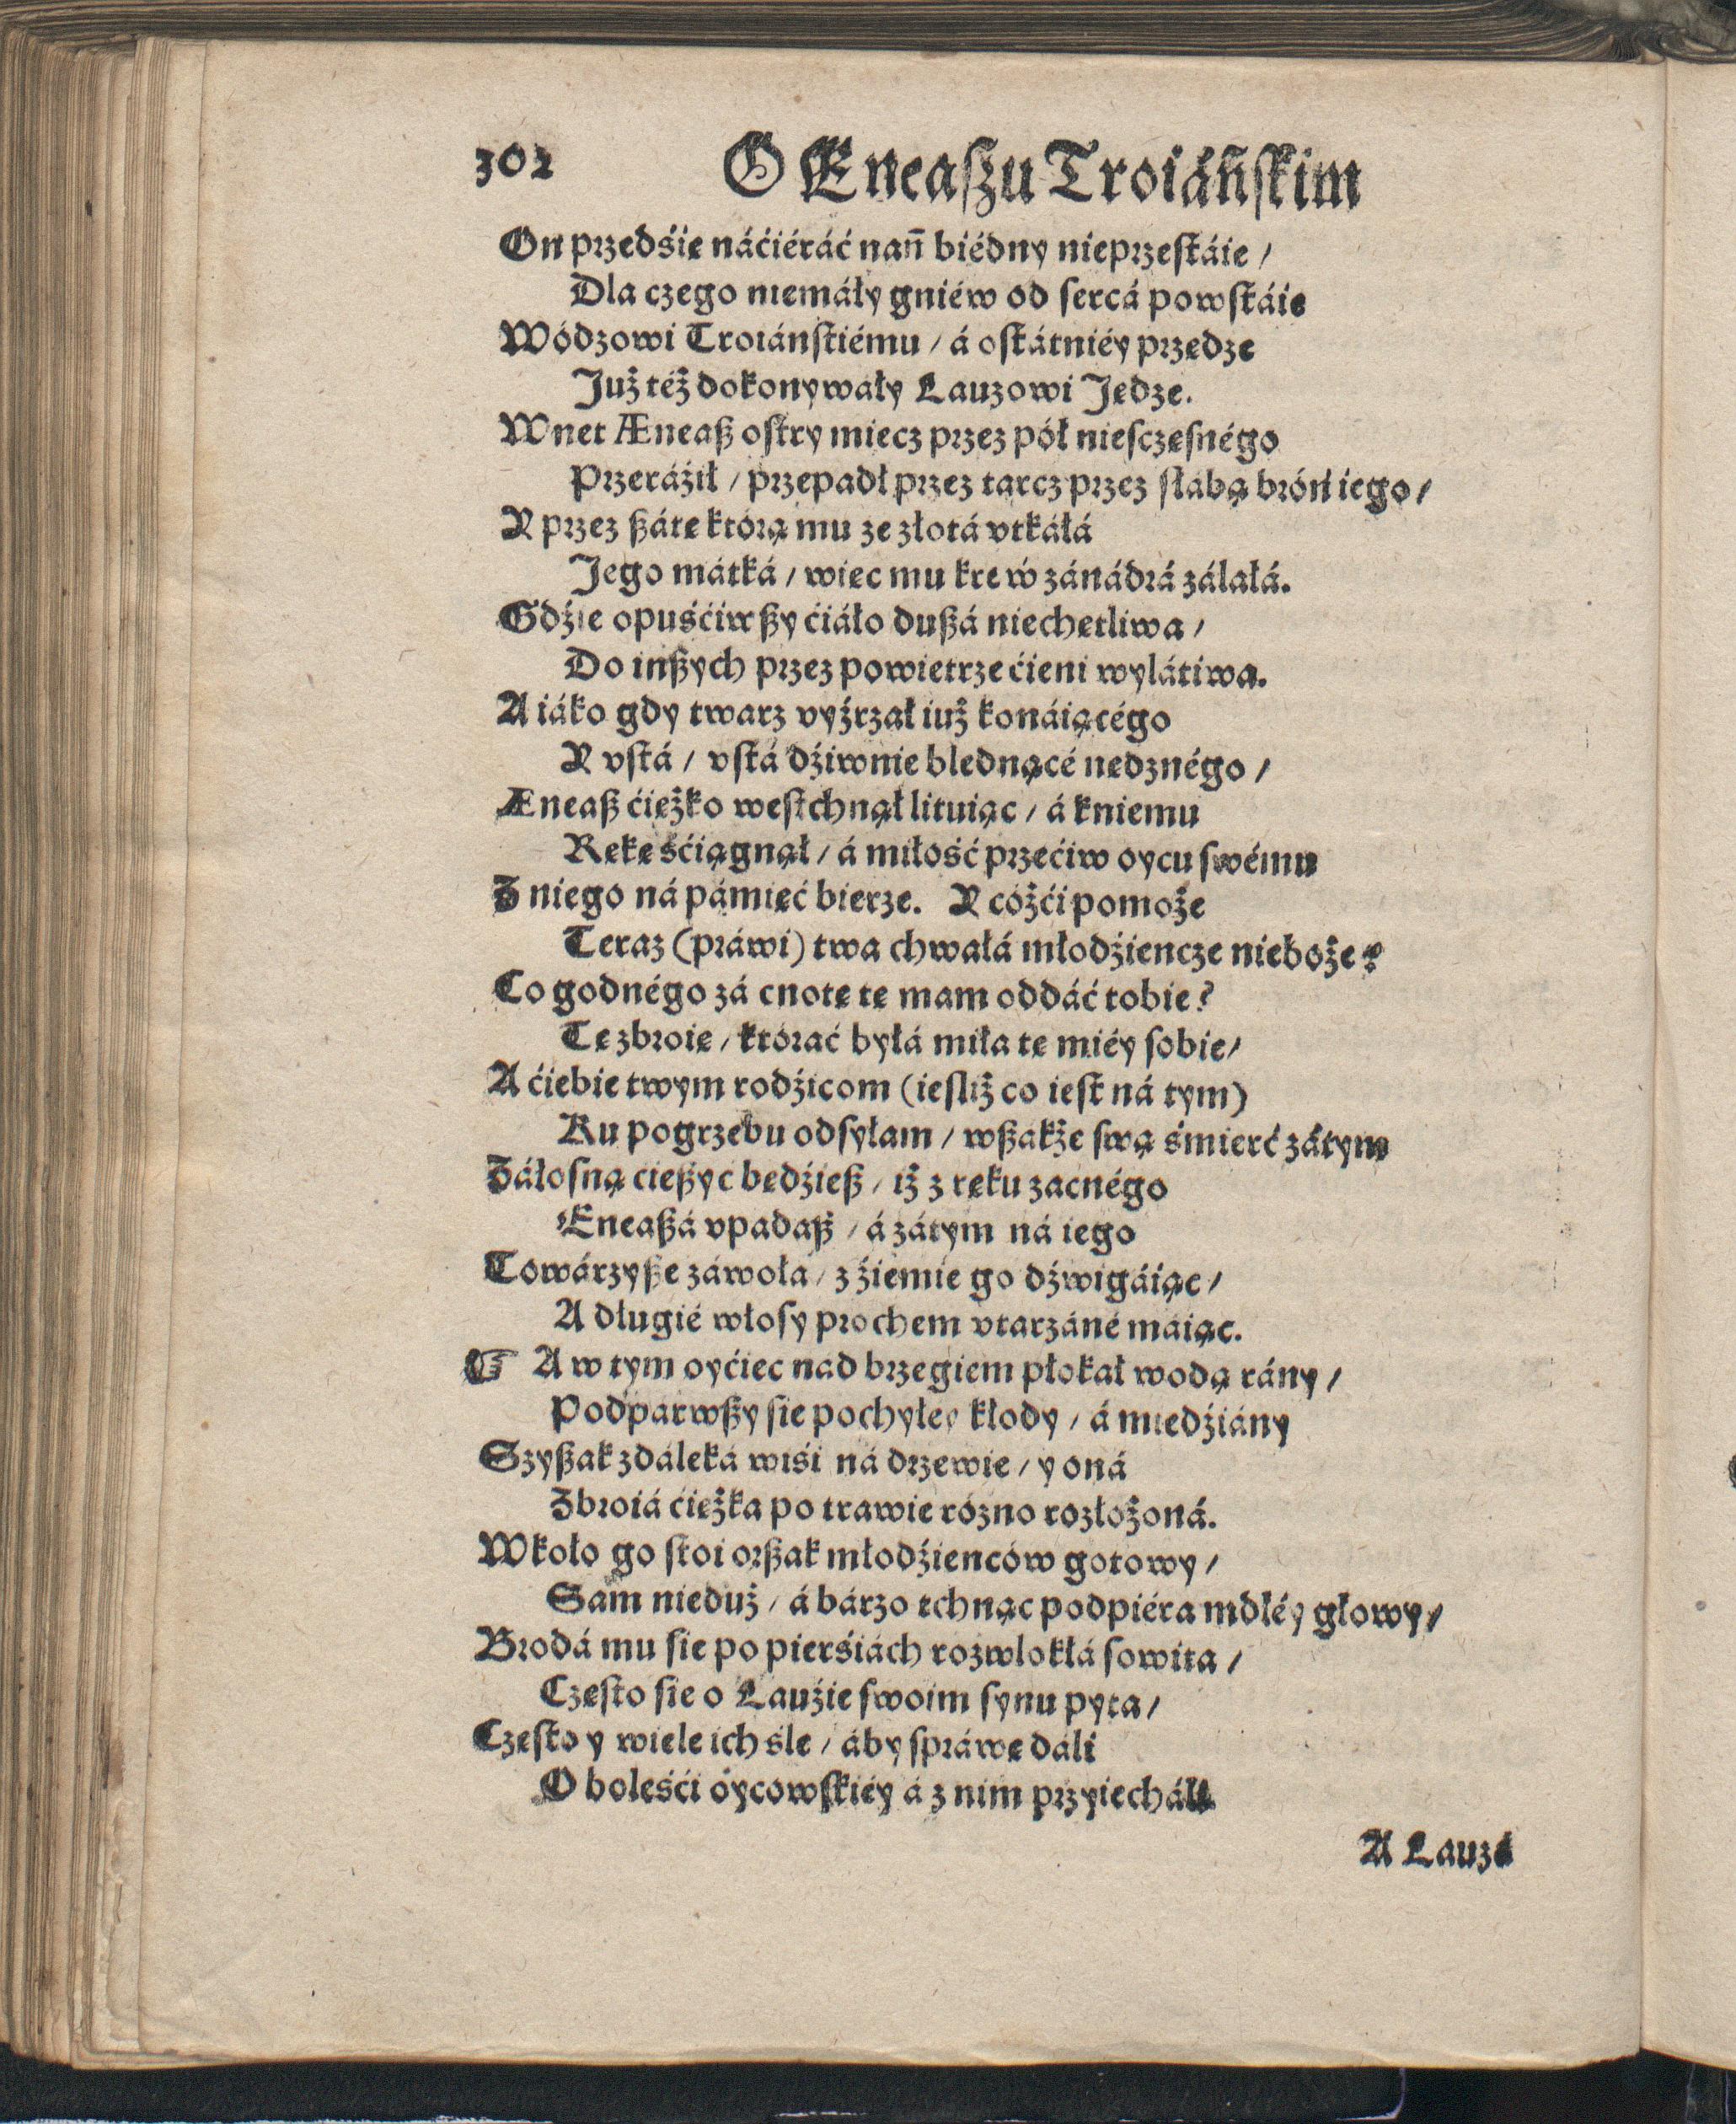 302 O Eneaſzu Troiáńſkim
On przedśię náćiéráć nań biédny nieprzeſtáie /
Dla czego niemáły gniéw od ſercá powſtáie
Wódzowi Troiánſkiému / á oſtátniéy przędze
Już téż dokonywały Lauzowi Jędze.
Wnet Æneaß oſtry miecz przez pół nieſczęſnégo
Przeráźił / przepadł przez tarcz przez ſłabą bróń iego /
Y przez ßátę którą mu ze złotá vtkáłá
Jego mátká / więc mu krew zánádrá zálałá.
Gdźie opuśćiwßy ćiáło dußá niechętliwa /
Do inßych przez powietrze ćieni wylátiwa.
A iáko gdy twarz vyźrzał iuż konáiącégo
Y vſtá / vſtá dźiwnie blednącé nędznégo /
Æneaß ćiężko weſtchnął lituiąc / á kniemu
Rękę śćiągnął / á miłość przećiw oycu ſwému
Z niego ná pámięć bierze. Y cóżći pomoże
Teraz (práwi) twa chwałá młodźiencze nieboże?
Co godnégo zá cnotę tę mam oddáć tobie?
Tę zbroię / któráć byłá miła tę miéy ſobie /
A ćiebie twym rodźicom (ieſliż co ieſt ná tym)
Ku pogrzebu odſyłam / wßakże ſwą śmierć zátym
Záłoſną cießyć będźieß / iż z ręku zacnégo
Eneaßá vpadaß / á zátym ná iego
Towárzyße záwoła / z źiemie go dźwigáiąc /
A długié włoſy prochem vtarzáné máiąc.
☞ A w tym oyćiec nad brzegiem płokał wodą rány /
Podparwßy ſie pochyłey kłody / á miedźiány
Szyßak zdáleká wiśi ná drzewie / y oná
Zbroiá ćiężka po trawie rózno rozłożoná.
Wkoło go ſtoi orßak młodźienców gotowy /
Sam nieduż / á bárzo tchnąc podpiéra mdłéy głowy /
Brodá mu ſie po pierśiách rozwlokłá ſowita /
Częſto ſie o Lauźie ſwoim ſynu pyta /
Częſto y wiele ich śle / áby ſpráwę dáli
O boleśći oycowſkiéy á z nim przyiecháli.
A Lauzá